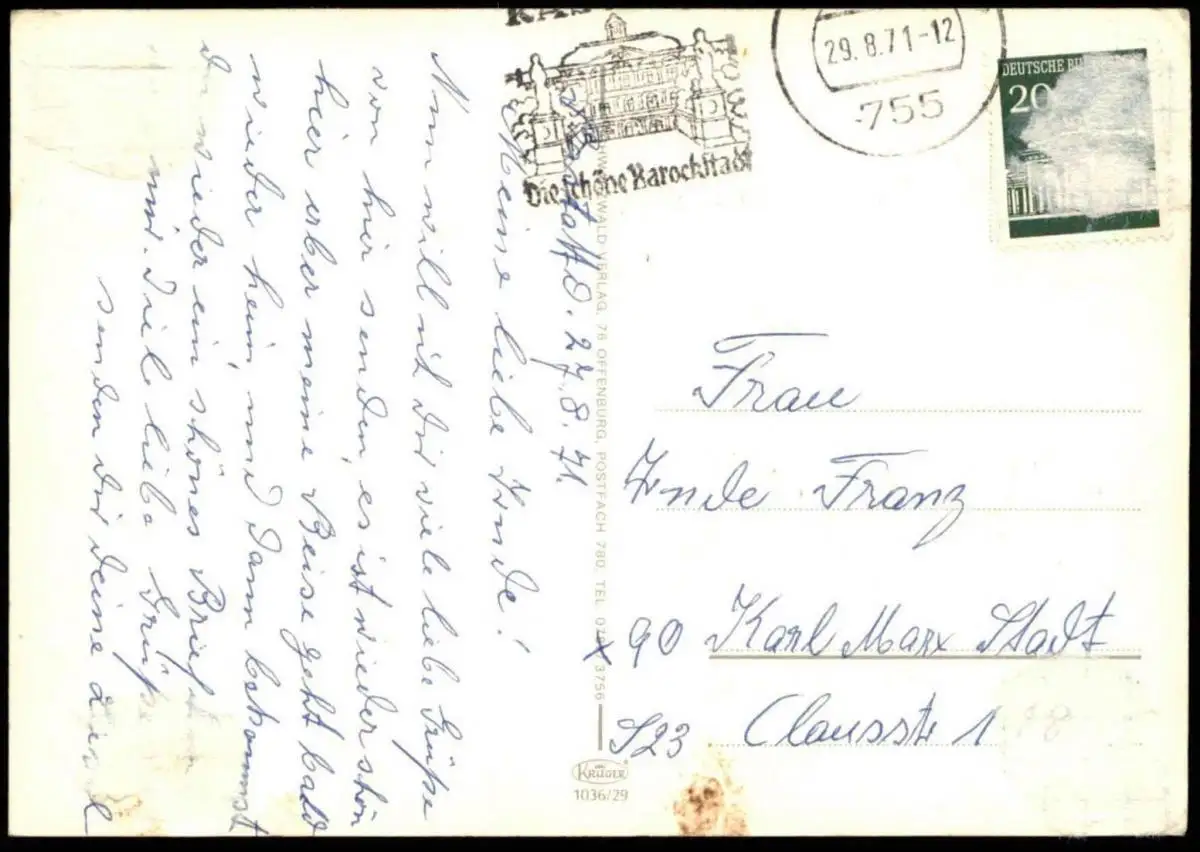 Rastatt d. 27.8.71.
Meine liebe Trude!
Nun will ich Dir viele liebe Grüße
von hier senden, es ist wieder schön
hier aber meine Reise geht bald
wieder heim, und dann bekommst
Du wieder ein schönes Brief von
mir. Viele liebe Grüße
senden Dir deine
Die schöne Barockstadt
29.8.71-12
755
DEUTSCHE BU
20
WALD VERLAG, 76 OFFENBURG, POSTFACH 780, TEL. 3756
KRÜGER
1036/29
Frau
Trude Franz
X 90 Karl Marx Stadt
Clausstr 1